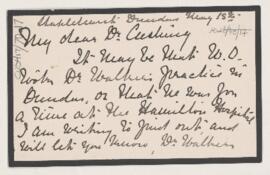 Dundas May 18th
My dear Dr. Cushing
It may be that W.O.
took Dr Walker's practice in
Dundas, or that he was for
a time at the Hamilton Hospital
I am writing to find out and
will let you know, Dr. Walkers